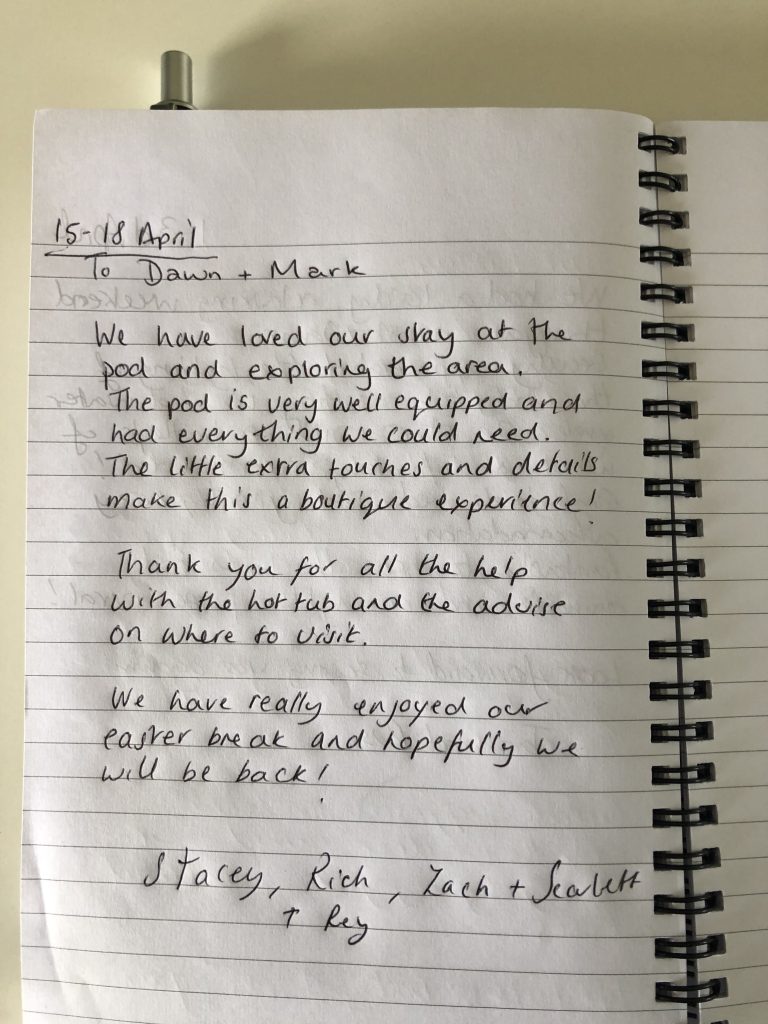 15-18 April
To Dawn + Mark
We have loved our stay at the
pod and exploring the area.
The pod is very well equipped and
had everything we could need.
The little extra touches and details
make this a boutique experience!
Thank you for all the help
with the hot tub and the advise
on where to visit.
We have really enjoyed our
easter break and hopefully we
will be back!
Stacey, Rich, Zach + Scarlett
+ Rey